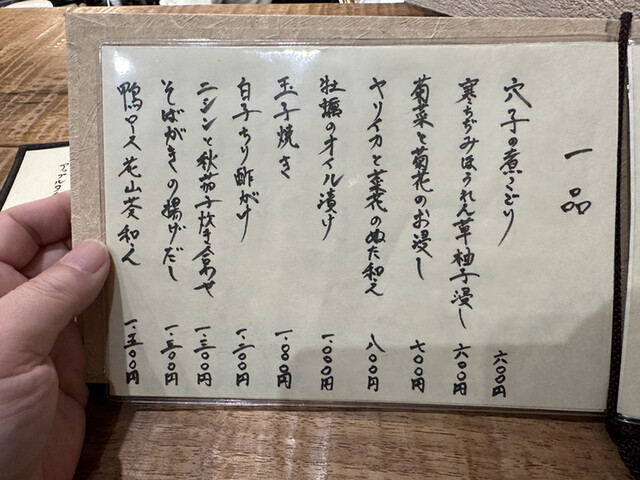 一品
穴子の煮こごり 六〇〇円
寒ちぢみほうれん草柚子浸し 六〇〇円
菊菜と菊花のお浸し 七〇〇円
ヤリイカと菜花のぬた和え 八〇〇円
牡蠣のオイル漬け 一、〇〇〇円
玉子焼き 一、〇〇〇円
白子ちり酢がけ 一、二〇〇円
ニシンと秋茄子炊き合わせ 一、三〇〇円
そばがきの揚げだし 一、三〇〇円
鴨ロース花山葵和え 一、五〇〇円